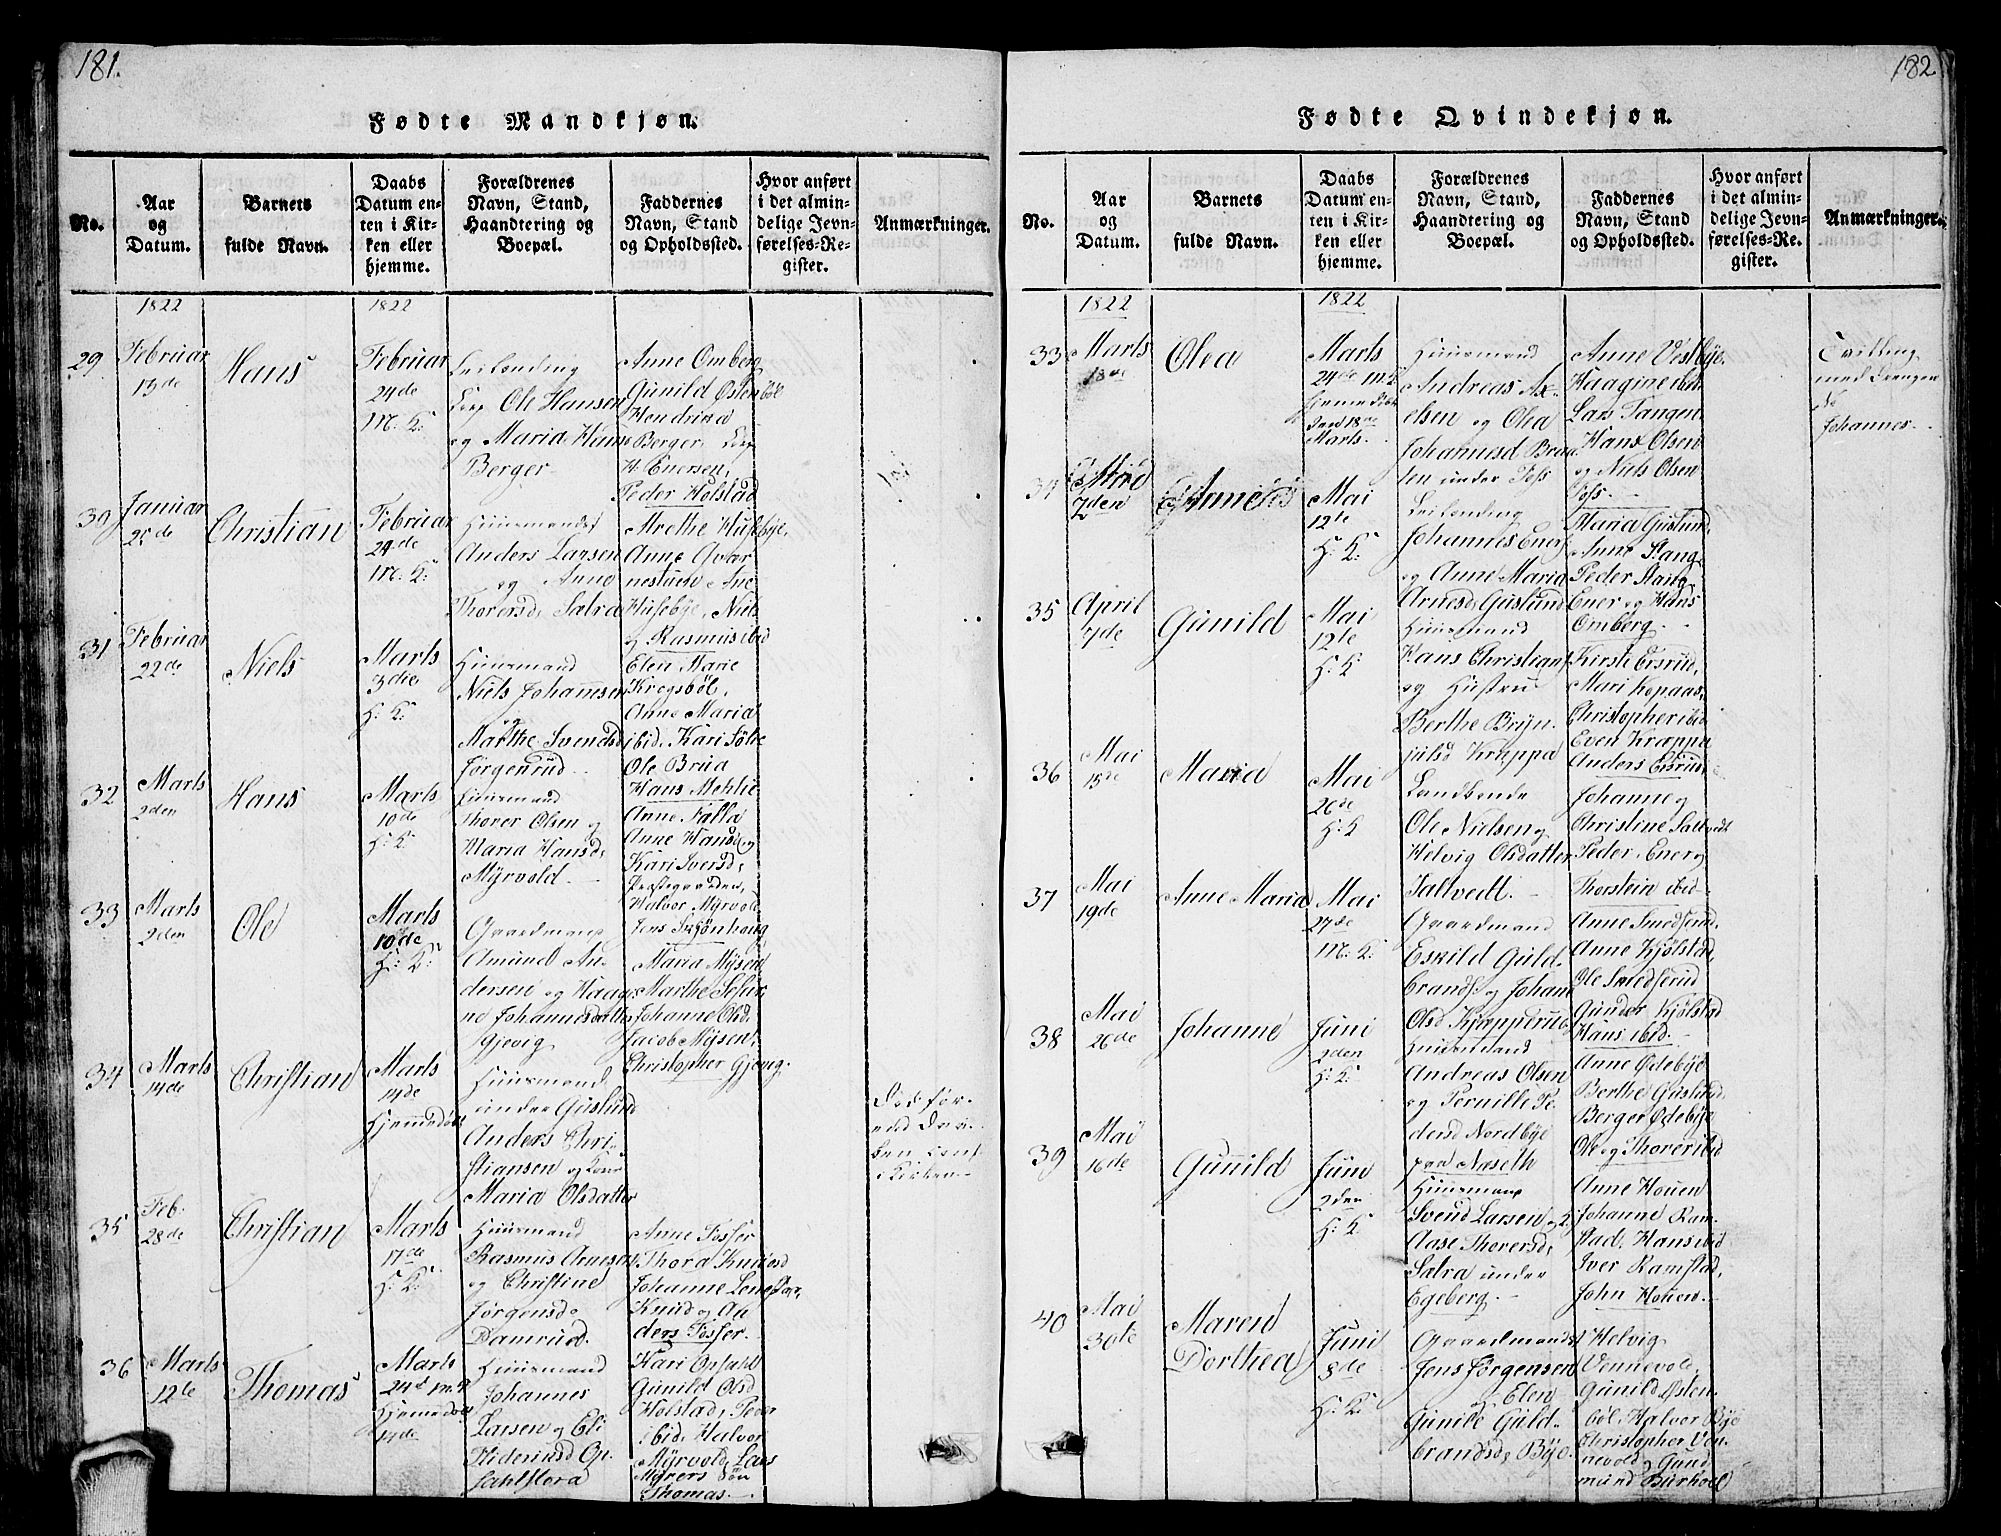 181.
Fødte Mandkjøn.
No.
Aar
og
Datum.
Barnets
fulde Navn.
Daabs
Datum en-
ten i Kir-
ken eller
hjemme.
Forældrenes
Navn, Stand,
Haandtering og
Boepæl.
Faddernes
Navn, Stand
og Opholdssted.
Hvor anført
i det almin-
delige Jevn-
førelses-Re-
gister.
Anmærkninger.
1822
1822
29
Februar
13de
Hans
Februar
24de
M. K:
Leilending
Ole Hansen
og Maria Hans
Berger
Anne Omberg
Gunild Østenbøl
Hendrina
Berger
H. Enersen,
Peder Holstad
30
Januar
25de
Christian
Februar
24de
M. K:
Huusmand
Anders Larsen
og Anne
Thorersd. Salra
Mrethe Husebye,
Anne Qvær
nestuen
Husebye, Niels
og Rasmus ibid
31
Februar
22de
Niels
Marts
3die
H: K:
Huusmand
Niels Johannsen
og
Marthe Svendsd
Jørgenrud.
Elen Marie
Krogsbøl,
Anne Maria
ibid. Kari Sølie
Ole Brua
Hans Mehlie
32
Marts
2den
Hans
Marts
10de
H: K:
Huusmand
Thorer Olsen og
Maria Hansd.
Myrvold.
Anne Falla
Anne Hansd og
Kari Iversd.
Præstegaarden,
Halvor Myrvold
Jens Skjønhaug
33
Marts
2den
Ole
Marts
10de
H: K:
Gaardmand
Amund An-
dersen og Haagi-
ne Johannesdatter
Gjevig
Maria Mysen
Marthe
Johanne Olsd.
Jacob Mysen,
Christopher Gjevig.
34
Marts
14de
Christian
Marts
14de
Hjemmedøbt
Huusmand
under Guslund
Anders Chri-
stiansen og Kone
Maria Olsdatter
Død før-
end Daa-
ben
i Kirken
35
Feb.
28de
Christian
Marts
17de
H: K:
Huusmand
Rasmus Arnesen
og Christine
Jørgensd.
Damrud.
Anne Fosser
Thora Knudsd
Johanne
Knud og An
ders Fosser.
36
Marts
12te
Thomas
Marts
24de m. K
Hjemmedøbt
14de
Huusmand
Johannes
Larsen og Eli
Hideriksd Op-
sahlflora
Kari Opsahl
Gunild Olsd
Holstad, Peder
ibid. Halvor
Myrvold, Lars
Myrers Søn
Thomas.
182
Fødte Qvindekjøn.
No.
Aar
og
Datum.
Barnets
fulde Navn.
Daabs
Datum en-
ten i Kir-
ken eller
hjemme.
Forældrenes
Navn, Stand,
Haandtering og
Boepæl.
Faddernes
Navn, Stand
og Opholdssted.
Hvor anført
i det almin-
delige Jevn-
førelses-Re-
gister.
Anmærkninger.
1822
1822
33
Marts
13de
Olea
Marts
24de M. K
Hjemmedøbt
18de
Marts.
Huusmand
Andreas Ax-
elsen og Olea
Johannesd Braa
ten under Foss
Anne Vestbye,
Haagine ibid.
Lars Tangen
Hans Olsen
og Niels Olsen
Foss.
Tvilling
med Drengen
No
Johannes.
34
7den
Mai
12te
H: K:
Leilending
Johannes Ener
og Anne Maria
Arnesd. Guslund
Maria Guslund,
Anne Stang
Peder Stang
Ener og Hans
Omberg.
35
April
7de
Gunild
Mai
12te
H: K
Huusmand
Hans Christians
og Hustru
Berthe Bryn-
julsd Kræppa
Kirsti Ersrud,
Mari Kopaas,
Christopher ibid
Even Kræppa
Anders Ersrud
36
Mai
15de
Maria
Mai
26de
H: K
Landbonde
Ole Nielsen og
Helvig Olsdatter
Saltvedt.
Johanne og
Christine Saltvedt
Peder, Ener og
Thorstein ibid.
37
Mai
19de
Anne Maria
Mai
27de
M. K:
Gaardmand
Eskild Guld-
brands. og Johane
Olsd Kjæpperud
Anne Smedsrud.
Anne Kjølstad,
Ole Smedsrud
Gunder Kjølstad
Hans ibid.
38
Mai
26de
Johanne
Juni
2den
H: K:
Huusmand
Andreas Olsen
og Pernille Pe-
dersd Nordbye
paa Næseth
Anne Ødebye
Berthe Guslund
Berger Ødebye
Ole og Thorer ibid
39
Mai
16de
Gunild
Juni
2den
H: K
Huusmand
Svend Larsen og
Aase Thorersd.
Salra under
Egeberg.
Anne Houen
Johanne Ram-
stad, Hans ibid
Iver Ramstad,
John Houen.
40
Mai
30te
Maren
Dorthea
Juni
8de
H: K:
Gaardmand
Jens Jørgensen
og Elen
Gunild Guld-
brandsd. Bye.
Helvig
Vennevold,
Gunild Østen-
bøl, Halvor Bye
Christopher Ven-
nevold og Gund
mund Burholt